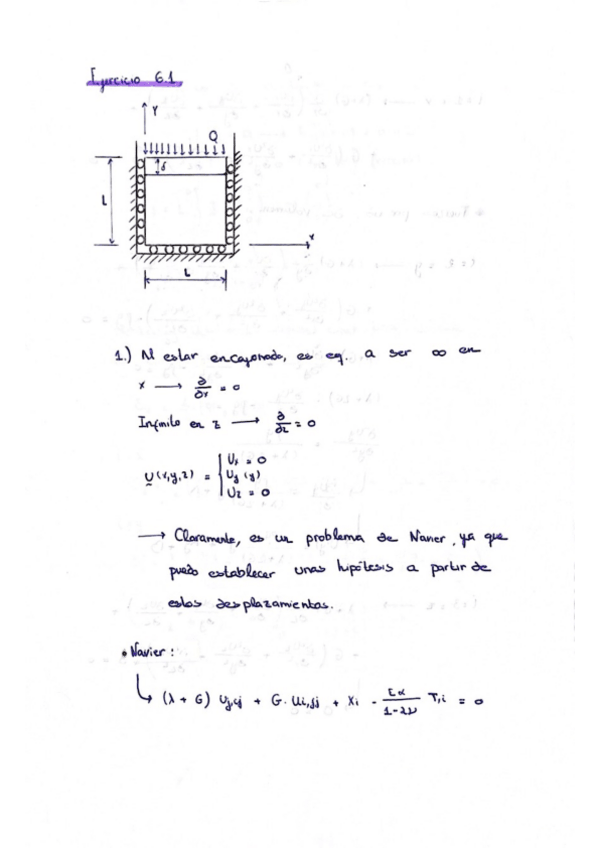 Ejercicio 6.1
Y
Q
δ
L
x
L
1.) Al estar encajonado, es eq. a ser ∞ en
x ⟶ ∂/∂x = 0
Infinito en z ⟶ ∂/∂z = 0
U(x,y,z) = { Ux = 0
Uy (y)
Uz = 0
⟶ Claramente, es un problema de Navier, ya que
puedo establecer unas hipótesis a partir de
estos desplazamientos.
• Navier:
↳ (λ + G) Uj,ij + G · Ui,jj + Xi - Eα/1-2ν T,i = 0